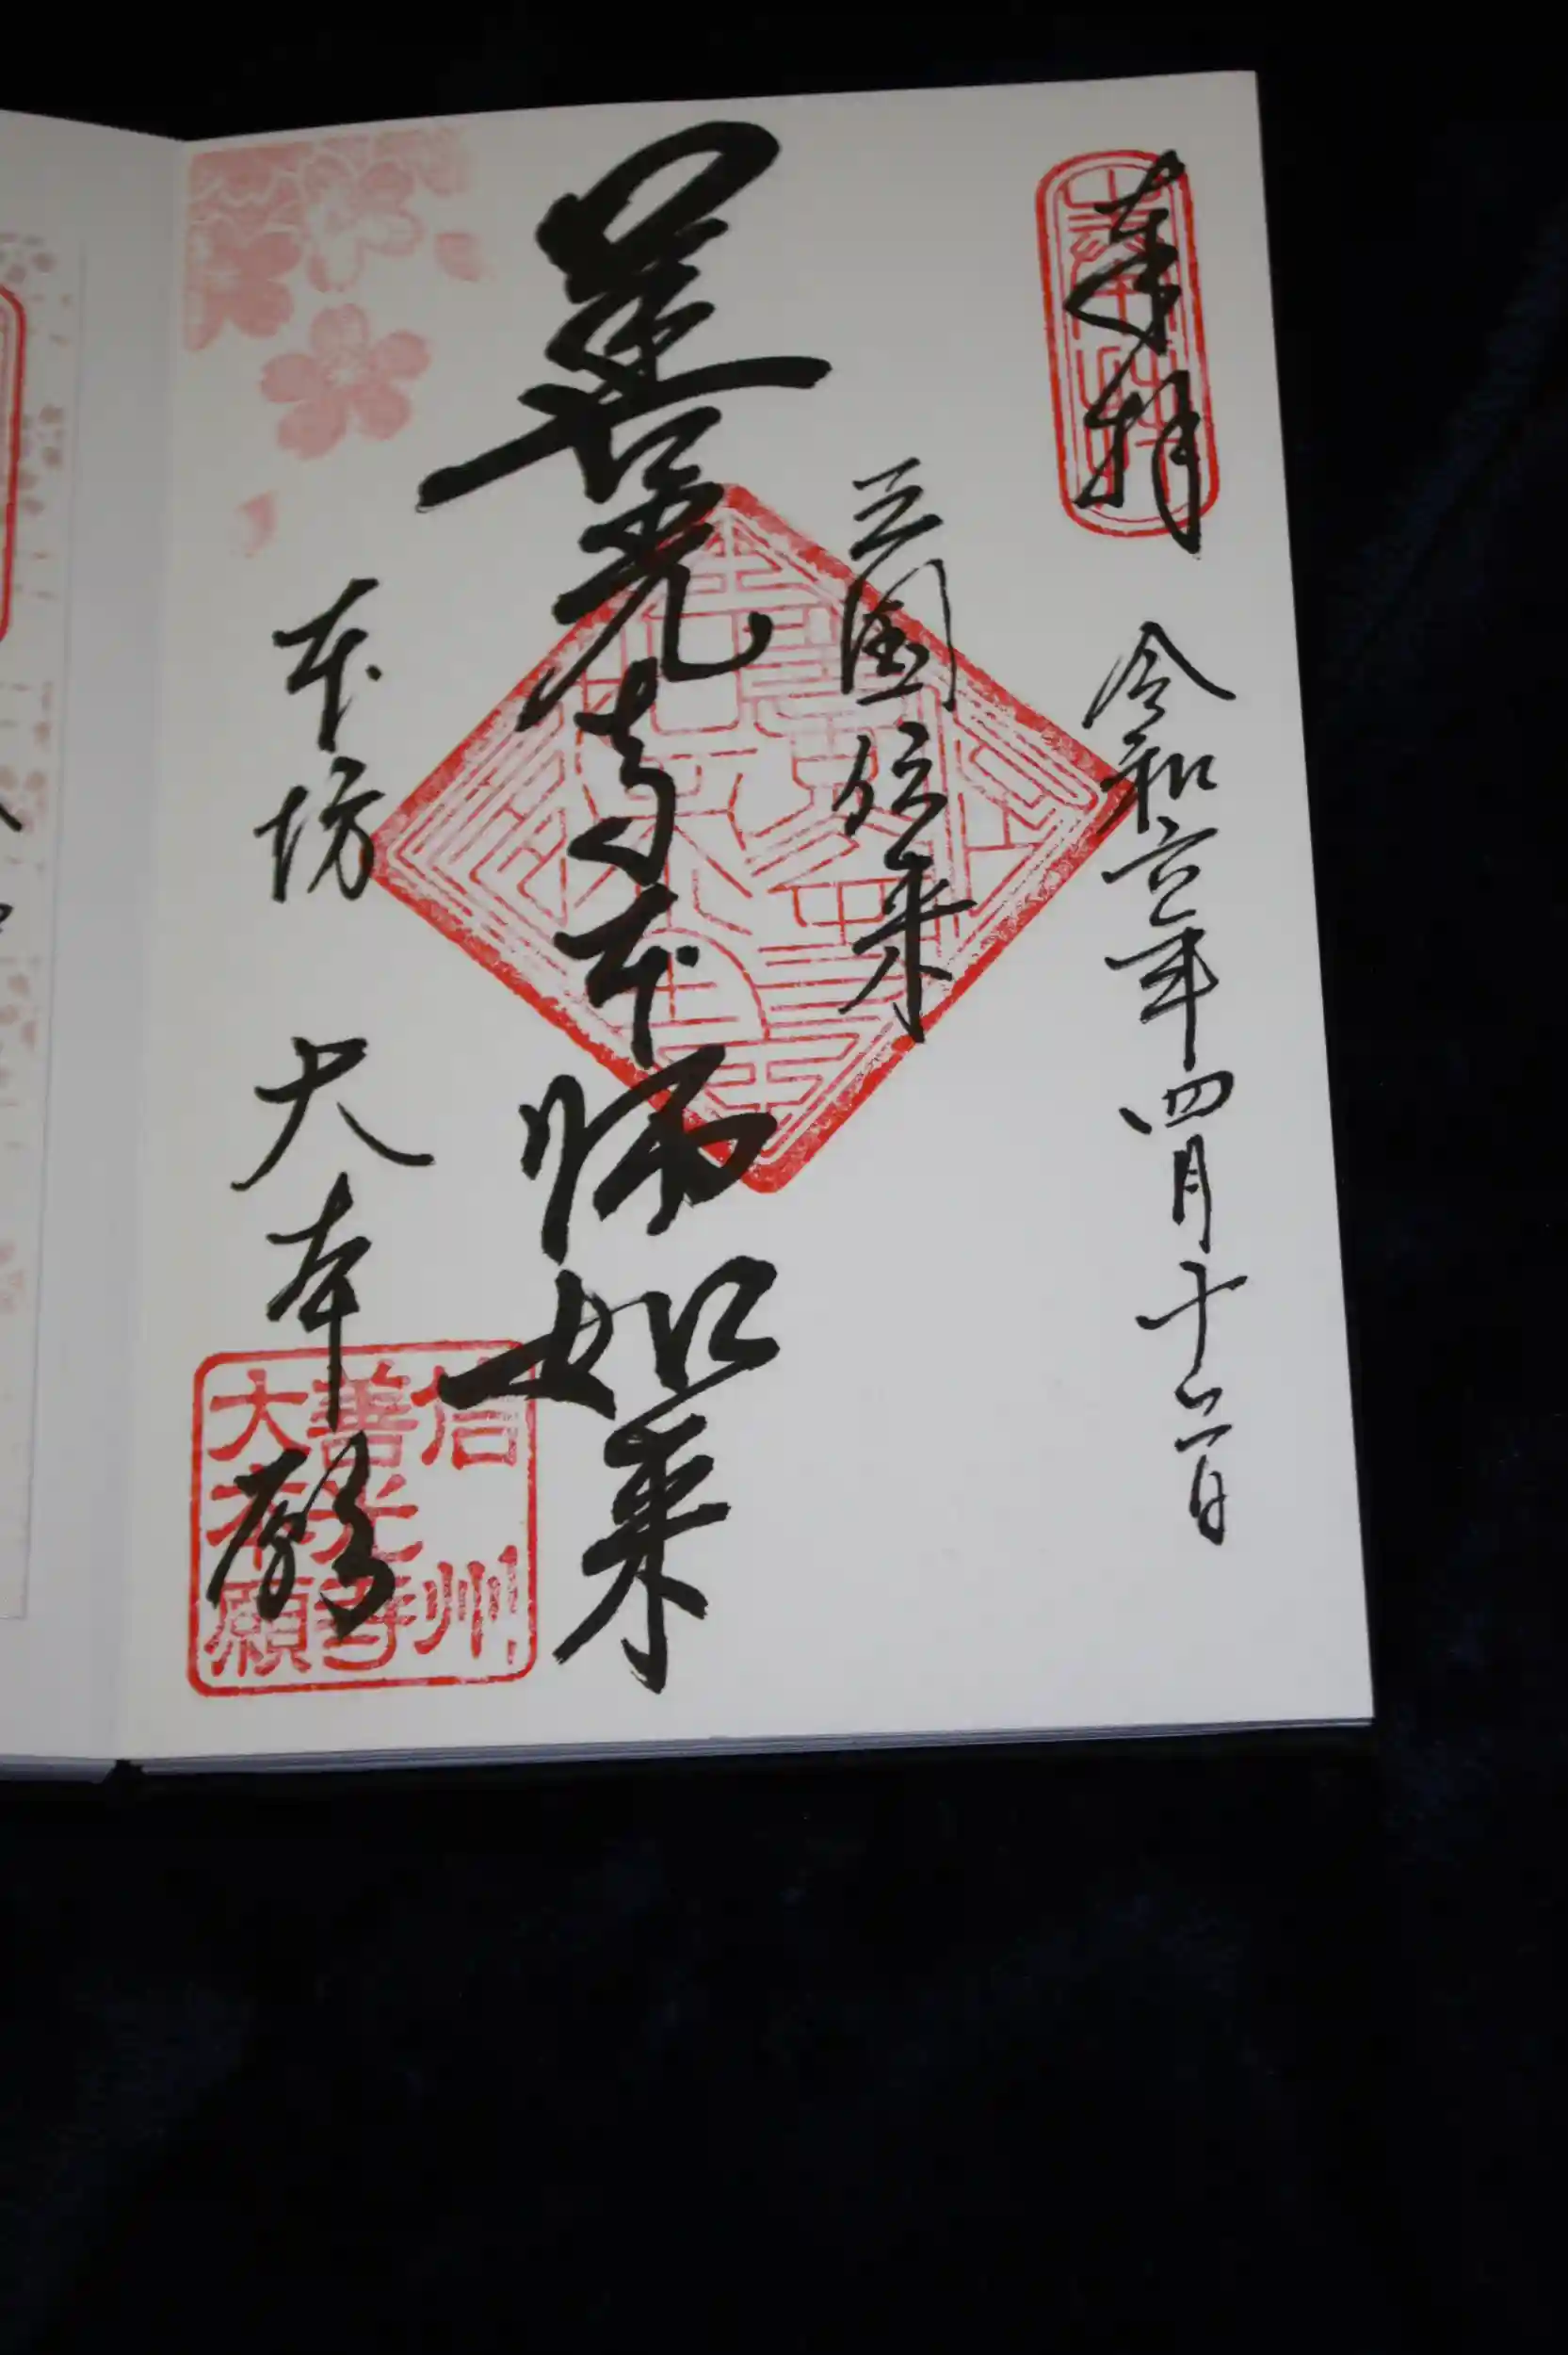 奉拝
令和六年四月十六日
三国伝来
善光寺本師如来
本坊 大本願
信州
善光寺
大本願